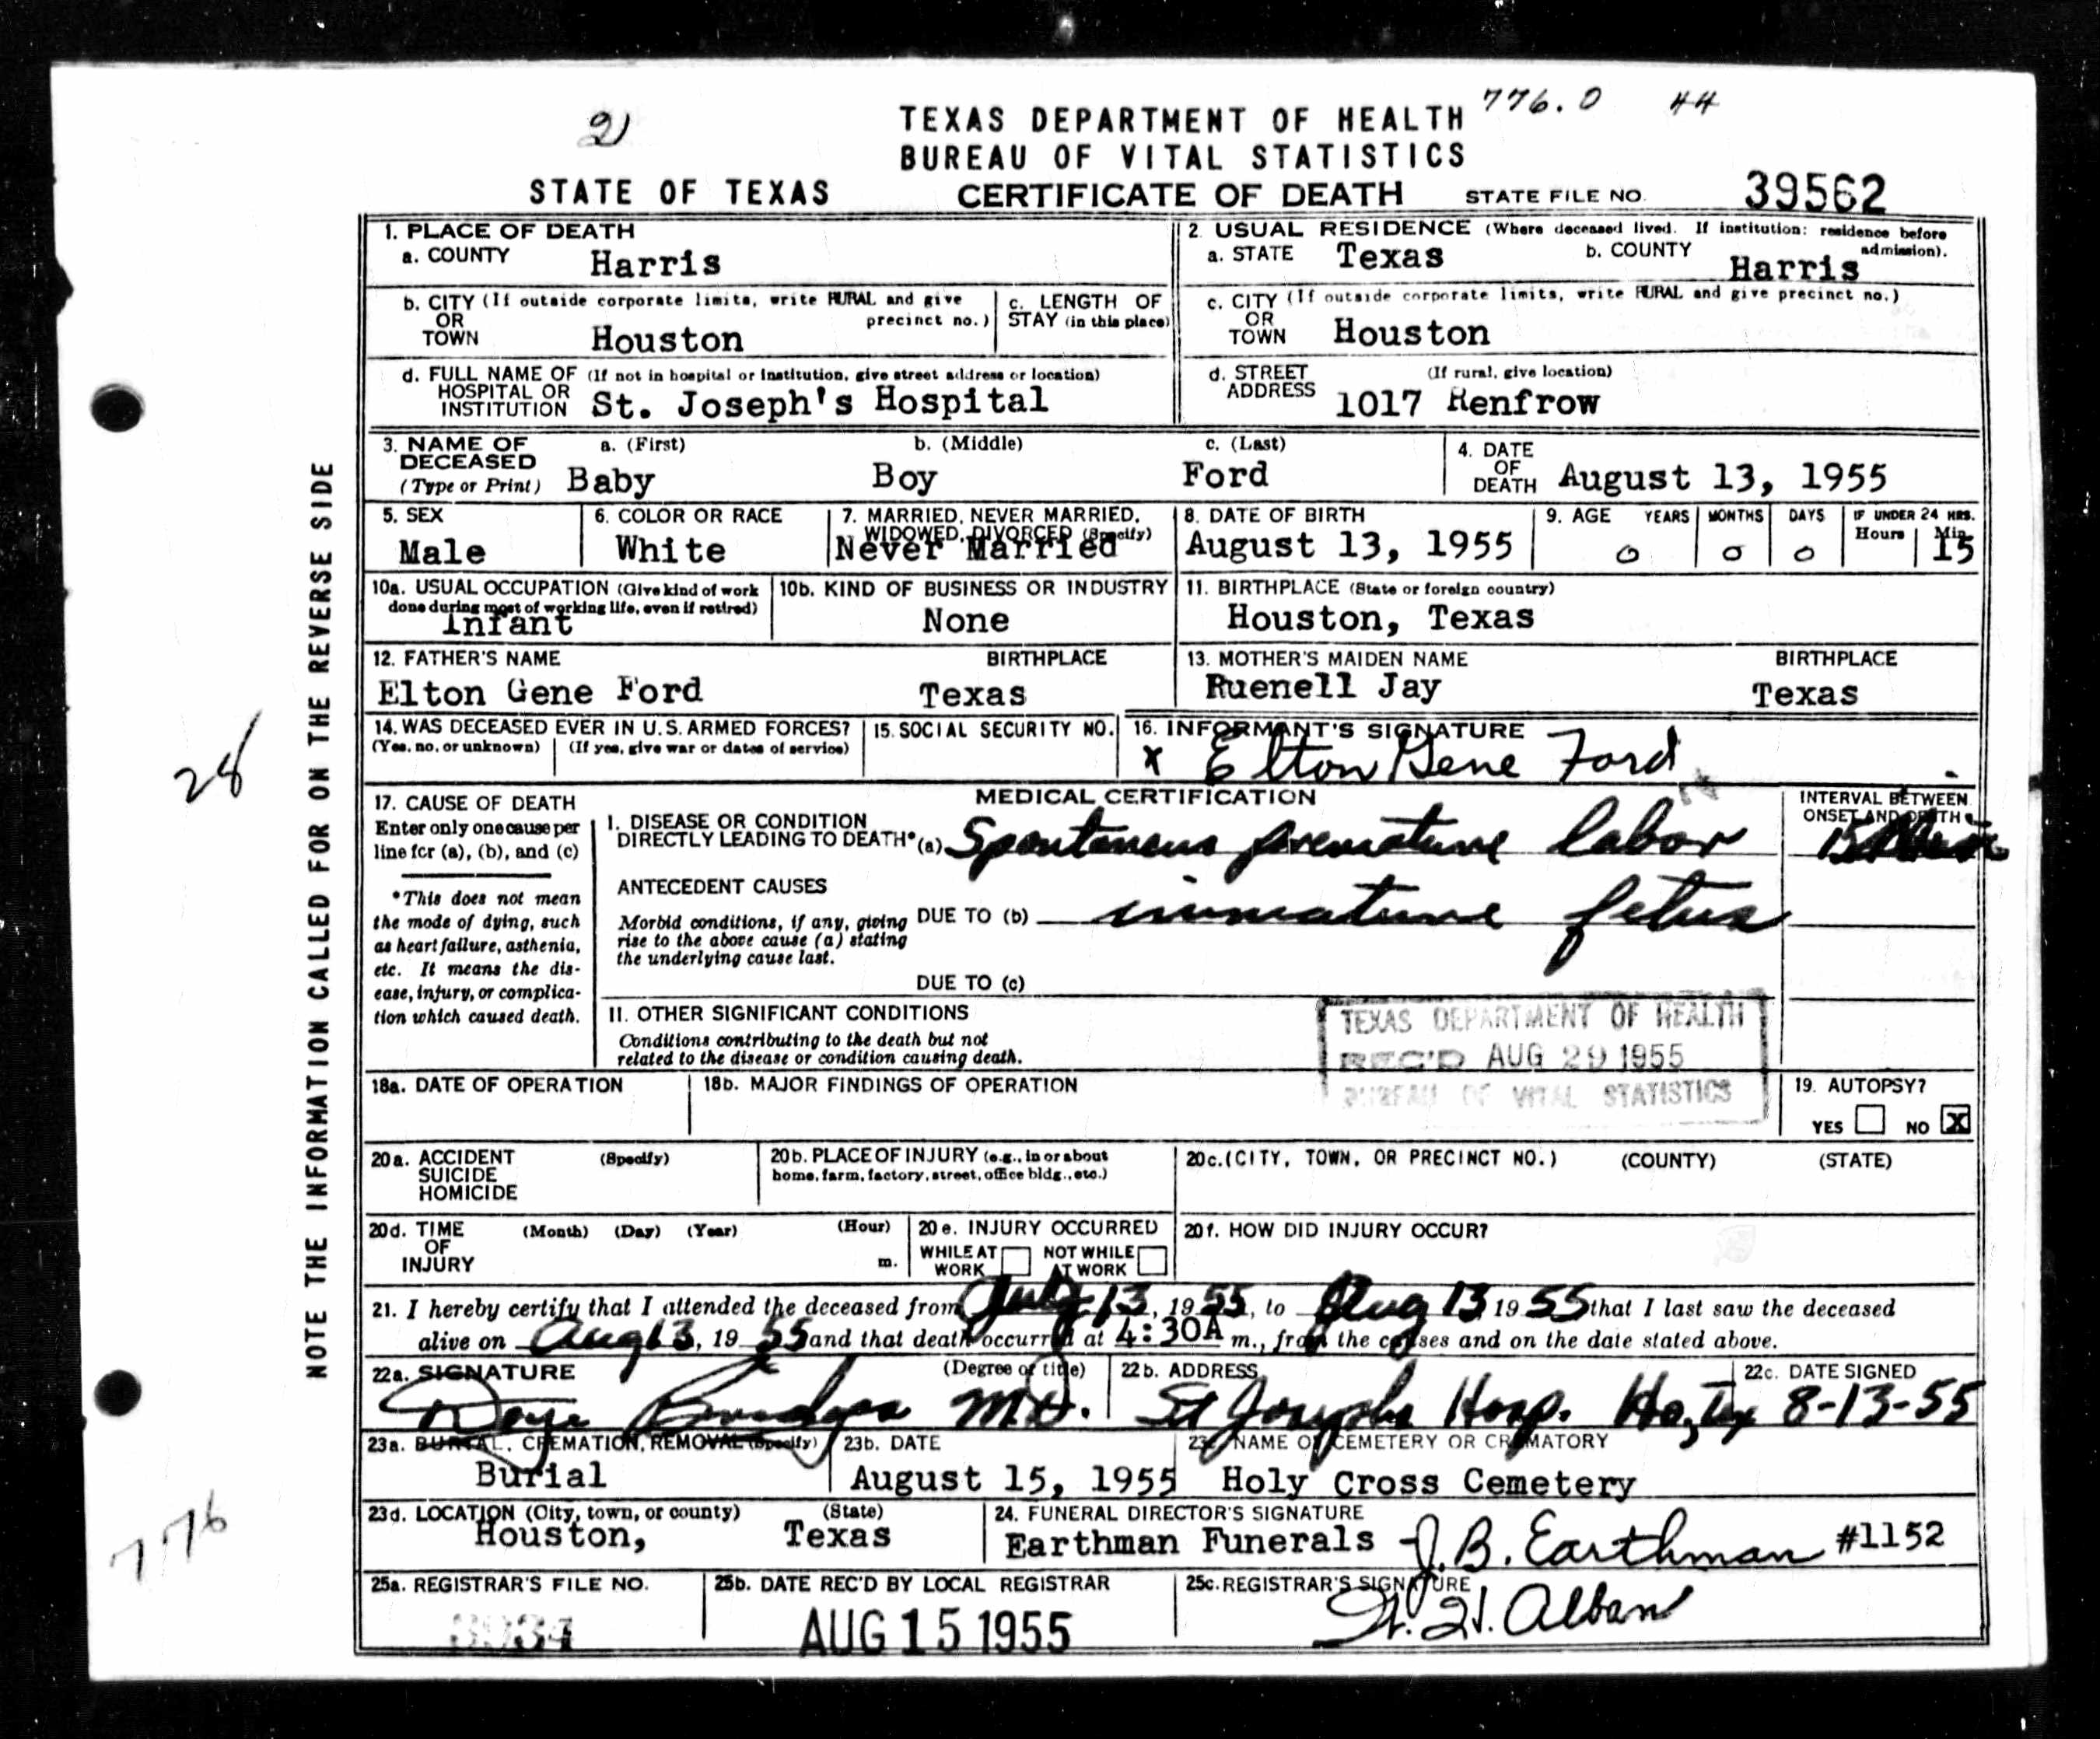 776.0 44
2
TEXAS DEPARTMENT OF HEALTH
BUREAU OF VITAL STATISTICS
STATE OF TEXAS CERTIFICATE OF DEATH STATE FILE NO. 39562
1. PLACE OF DEATH
a. COUNTY Harris
2. USUAL RESIDENCE (Where deceased lived. If institution: residence before admission).
a. STATE Texas b. COUNTY Harris
b. CITY (If outside corporate limits, write RURAL and give precinct no.) OR TOWN Houston
c. LENGTH OF STAY (in this place)
c. CITY (If outside corporate limits, write RURAL and give precinct no.) OR TOWN Houston
d. FULL NAME OF (If not in hospital or institution, give street address or location) HOSPITAL OR INSTITUTION St. Joseph's Hospital
d. STREET ADDRESS (If rural, give location) 1017 Renfrow
3. NAME OF DECEASED (Type or Print) a. (First) Baby b. (Middle) Boy c. (Last) Ford
4. DATE OF DEATH August 13, 1955
5. SEX Male
6. COLOR OR RACE White
7. MARRIED, NEVER MARRIED, WIDOWED, DIVORCED (Specify) Never Married
8. DATE OF BIRTH August 13, 1955
9. AGE YEARS 0 MONTHS 0 DAYS 0 IF UNDER 24 HRS. Hours Min. 15
10a. USUAL OCCUPATION (Give kind of work done during most of working life, even if retired) Infant
10b. KIND OF BUSINESS OR INDUSTRY None
11. BIRTHPLACE (State or foreign country) Houston, Texas
12. FATHER'S NAME Elton Gene Ford BIRTHPLACE Texas
13. MOTHER'S MAIDEN NAME Ruenell Jay BIRTHPLACE Texas
14. WAS DECEASED EVER IN U.S. ARMED FORCES? (Yes, no, or unknown) (If yes, give war or dates of service)
15. SOCIAL SECURITY NO.
16. INFORMANT'S SIGNATURE x Elton Gene Ford
17. CAUSE OF DEATH
Enter only one cause per line for (a), (b), and (c)
*This does not mean the mode of dying, such as heart failure, asthenia, etc. It means the disease, injury, or complication which caused death.
MEDICAL CERTIFICATION
INTERVAL BETWEEN ONSET AND DEATH
I. DISEASE OR CONDITION DIRECTLY LEADING TO DEATH* (a) Spontaneous premature labor 15
ANTECEDENT CAUSES
Morbid conditions, if any, giving rise to the above cause (a) stating the underlying cause last.
DUE TO (b) immature fetus
DUE TO (c)
II. OTHER SIGNIFICANT CONDITIONS
Conditions contributing to the death but not related to the disease or condition causing death.
TEXAS DEPARTMENT OF HEALTH
REC'D AUG 29 1955
BUREAU OF VITAL STATISTICS
18a. DATE OF OPERATION
18b. MAJOR FINDINGS OF OPERATION
19. AUTOPSY? YES NO X
20a. ACCIDENT SUICIDE HOMICIDE (Specify)
20b. PLACE OF INJURY (e.g., in or about home, farm, factory, street, office bldg., etc.)
20c. (CITY, TOWN, OR PRECINCT NO.) (COUNTY) (STATE)
20d. TIME OF INJURY (Month) (Day) (Year) (Hour) m.
20e. INJURY OCCURRED WHILE AT WORK NOT WHILE AT WORK
20f. HOW DID INJURY OCCUR?
21. I hereby certify that I attended the deceased from July 13, 1955, to Aug 13 1955 that I last saw the deceased
alive on Aug 13, 1955 and that death occurred at 4:30A m., from the causes and on the date stated above.
22a. SIGNATURE (Degree or title) M.D.
22b. ADDRESS St Josephs Hosp. Ho, Tex
22c. DATE SIGNED 8-13-55
23a. BURIAL, CREMATION, REMOVAL (Specify) Burial
23b. DATE August 15, 1955
23c. NAME OF CEMETERY OR CREMATORY Holy Cross Cemetery
23d. LOCATION (City, town, or county) (State) Houston, Texas
24. FUNERAL DIRECTOR'S SIGNATURE Earthman Funerals J. B. Earthman #1152
25a. REGISTRAR'S FILE NO.
25b. DATE REC'D BY LOCAL REGISTRAR AUG 15 1955
25c. REGISTRAR'S SIGNATURE Alban
NOTE THE INFORMATION CALLED FOR ON THE REVERSE SIDE
28
776